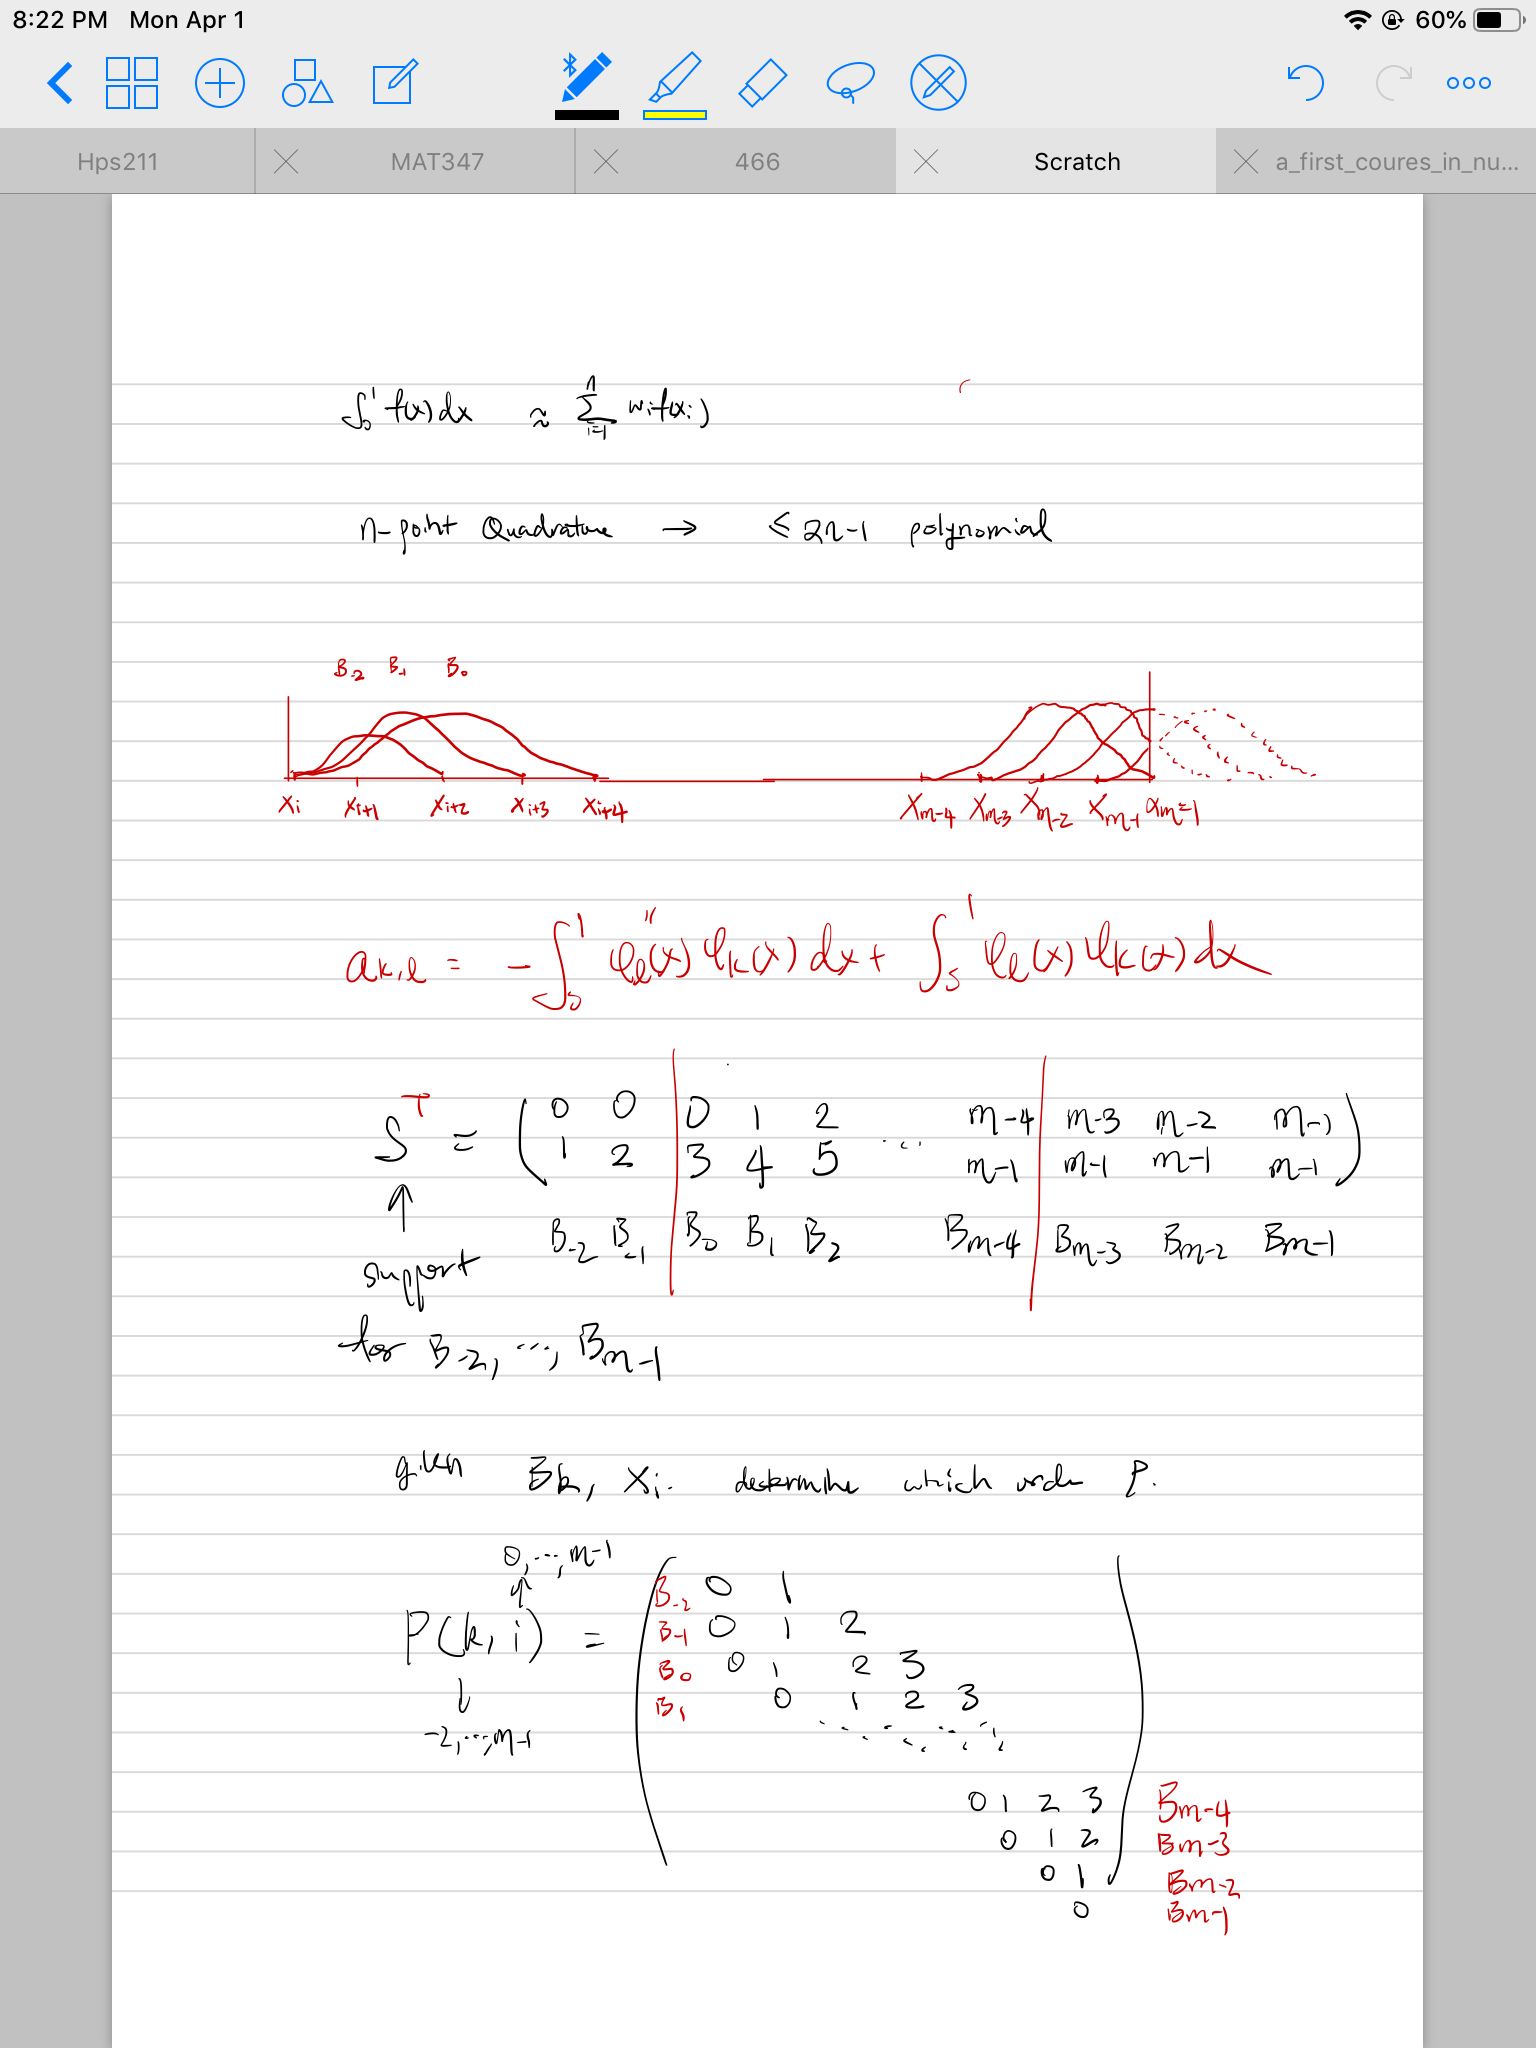 8:22 PM Mon Apr 1 60%
Hps211 MAT347 466 Scratch a_first_coures_in_nu...
∫₀¹ f(x) dx ≈ Σᵢ₌₁ⁿ wᵢ f(xᵢ)
n-point Quadrature → ≤ 2n-1 polynomial
B₋₂ B₋₁ B₀
xᵢ xᵢ₊₁ xᵢ₊₂ xᵢ₊₃ xᵢ₊₄ x_{m-4} x_{m-3} x_{m-2} x_{m-1} x_m=1
a_{k,l} = -∫₀¹ φ_l''(x) φ_k(x) dx + ∫₅¹ φ_l(x) φ_k(x) dx
0 0 0 1 2 m-4 m-3 m-2 m-1
Sᵀ = ( ... )
1 2 3 4 5 m-1 m-1 m-1 m-1
↑
B₋₂ B₋₁ B₀ B₁ B₂ B_{m-4} B_{m-3} B_{m-2} B_{m-1}
support
for B₋₂, ..., B_{m-1}
given B_k, xᵢ. determine which order P.
0, ..., m-1
↑
B₋₂ 0 1
P(k, i) = B₋₁ 0 1 2
B₀ 0 1 2 3
B₁ 0 1 2 3
↓
-2, ..., m-1
0 1 2 3 B_{m-4}
0 1 2 B_{m-3}
0 1 B_{m-2}
0 B_{m-1}